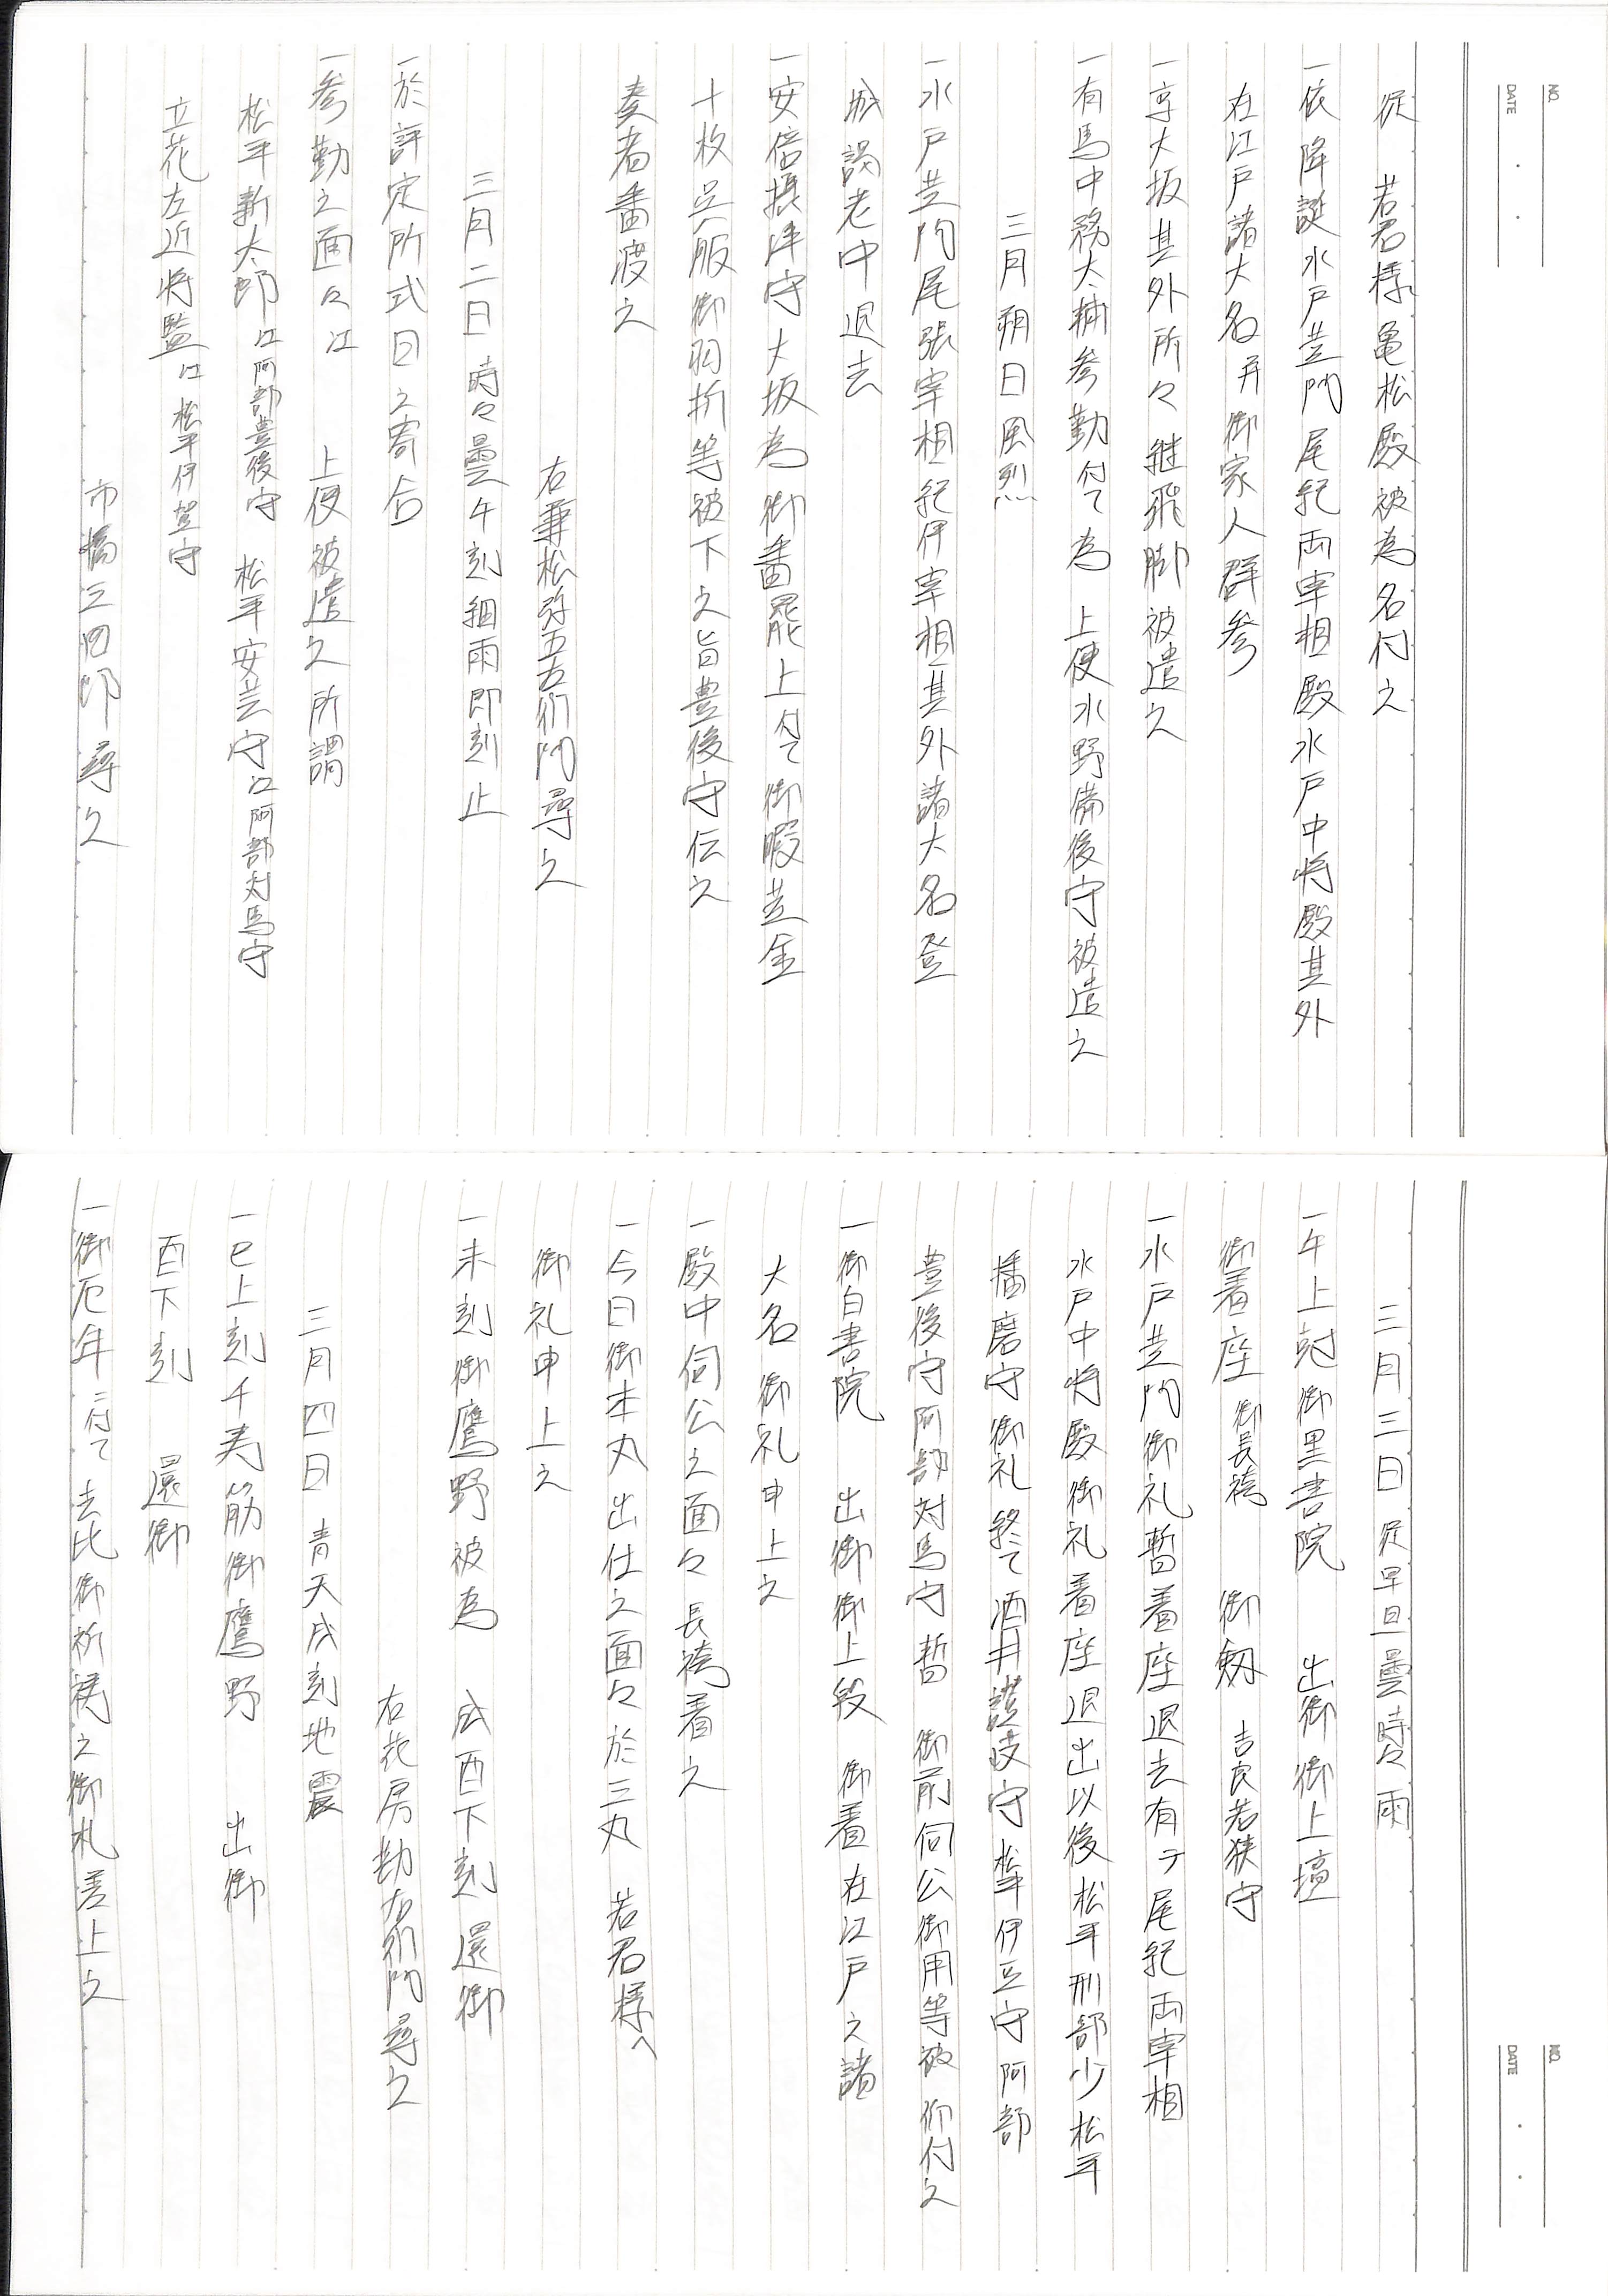 NO.
DATE
従 若君様亀松殿被為名付之
一依降誕水戸黄門尾紀両宰相殿水戸中将殿其外
在江戸諸大名并御家人群参
一京大坂其外所々継飛脚被遣之
一有馬中務太輔参勤付て為 上使水野備後守被遣之
三月朔日風烈
一水戸黄門尾張宰相紀伊宰相其外諸大名登
城謁老中退去
一安倍摂津守大坂為御番罷上付て御暇黄金
十枚呉服御羽折等被下之旨豊後守伝之
奏者番渡之
右兼松弥五左衛門尋之
三月二日時々曇午刻細雨即刻止
一於評定所式日之寄合
一参勤之面々江 上使被遣之所謂
松平新太郎江阿部豊後守 松平安芸守江阿部対馬守
立花左近将監江松平伊賀守
市橋三四郎尋之
NO.
DATE
三月三日従早旦曇時々雨
一午上刻御黒書院 出御御上壇
御着座御長袴 御劔 吉良若狭守
一水戸黄門御礼暫着座退去有テ尾紀両宰相
水戸中将殿御礼着座退出以後松平刑部少松平
播磨守御礼終て酒井讃岐守松平伊豆守阿部
豊後守阿部対馬守暫 御前伺公御用等被 仰付之
一御白書院 出御御上段 御着在江戸之諸
大名御礼申上之
一殿中伺公之面々長袴着之
一今日御本丸出仕之面々於三丸 若君様へ
御礼申上之
一未刻御鷹野被為 成酉下刻還御
右花房勘右衛門尋之
三月四日青天戌刻地震
一巳上刻千寿筋御鷹野 出御
酉下刻 還御
一御厄年ニ付て去比御祈祷之御札差上之